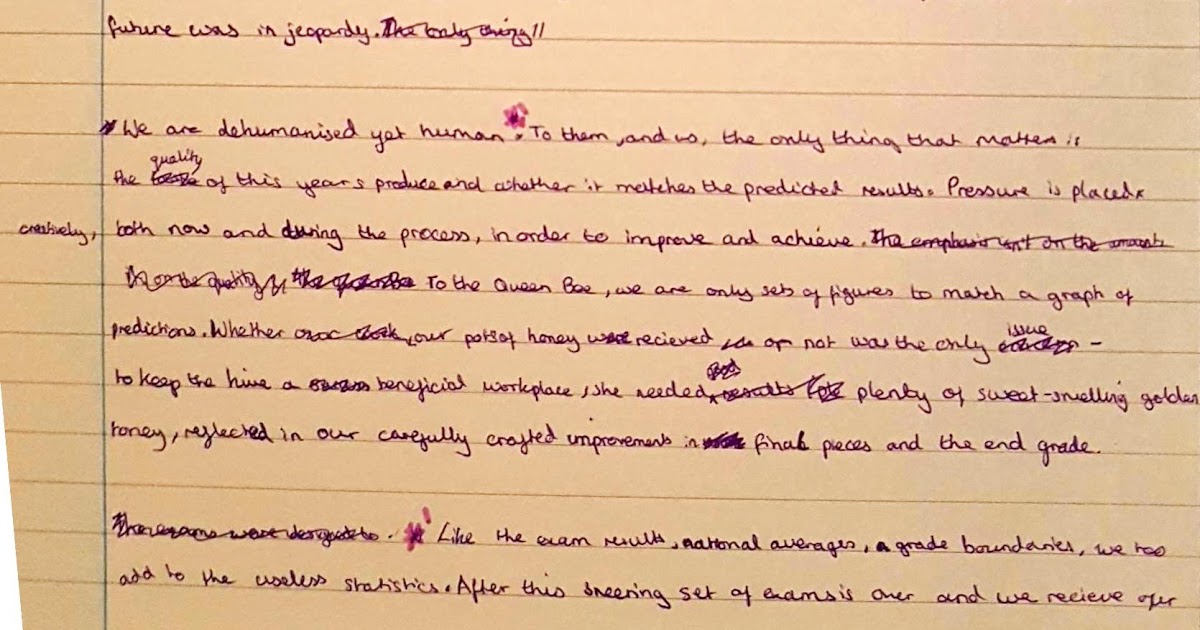 future was in jeopardy. The only thing //
We are dehumanised yet human. To them, and us, the only thing that matters is
quality
the of this years produce and whether it metches the predicted results. Pressure is placed
creatively, both now and during the process, in order to improve and achieve. The emphasis isn't on the amount
the quality To the Queen Bee, we are only sets of figures to match a graph of
predictions. Whether our pots of honey were recieved or not was the only
issue
to keep the hive a beneficial workplace, she needed plenty of sweet-smelling golden
honey, reflected in our carefully crafted improvements in final pieces and the end grade.
Like the exam results, national averages, grade boundaries, we too
add to the useless statistics. After this sneering set of exams is over and we recieve our